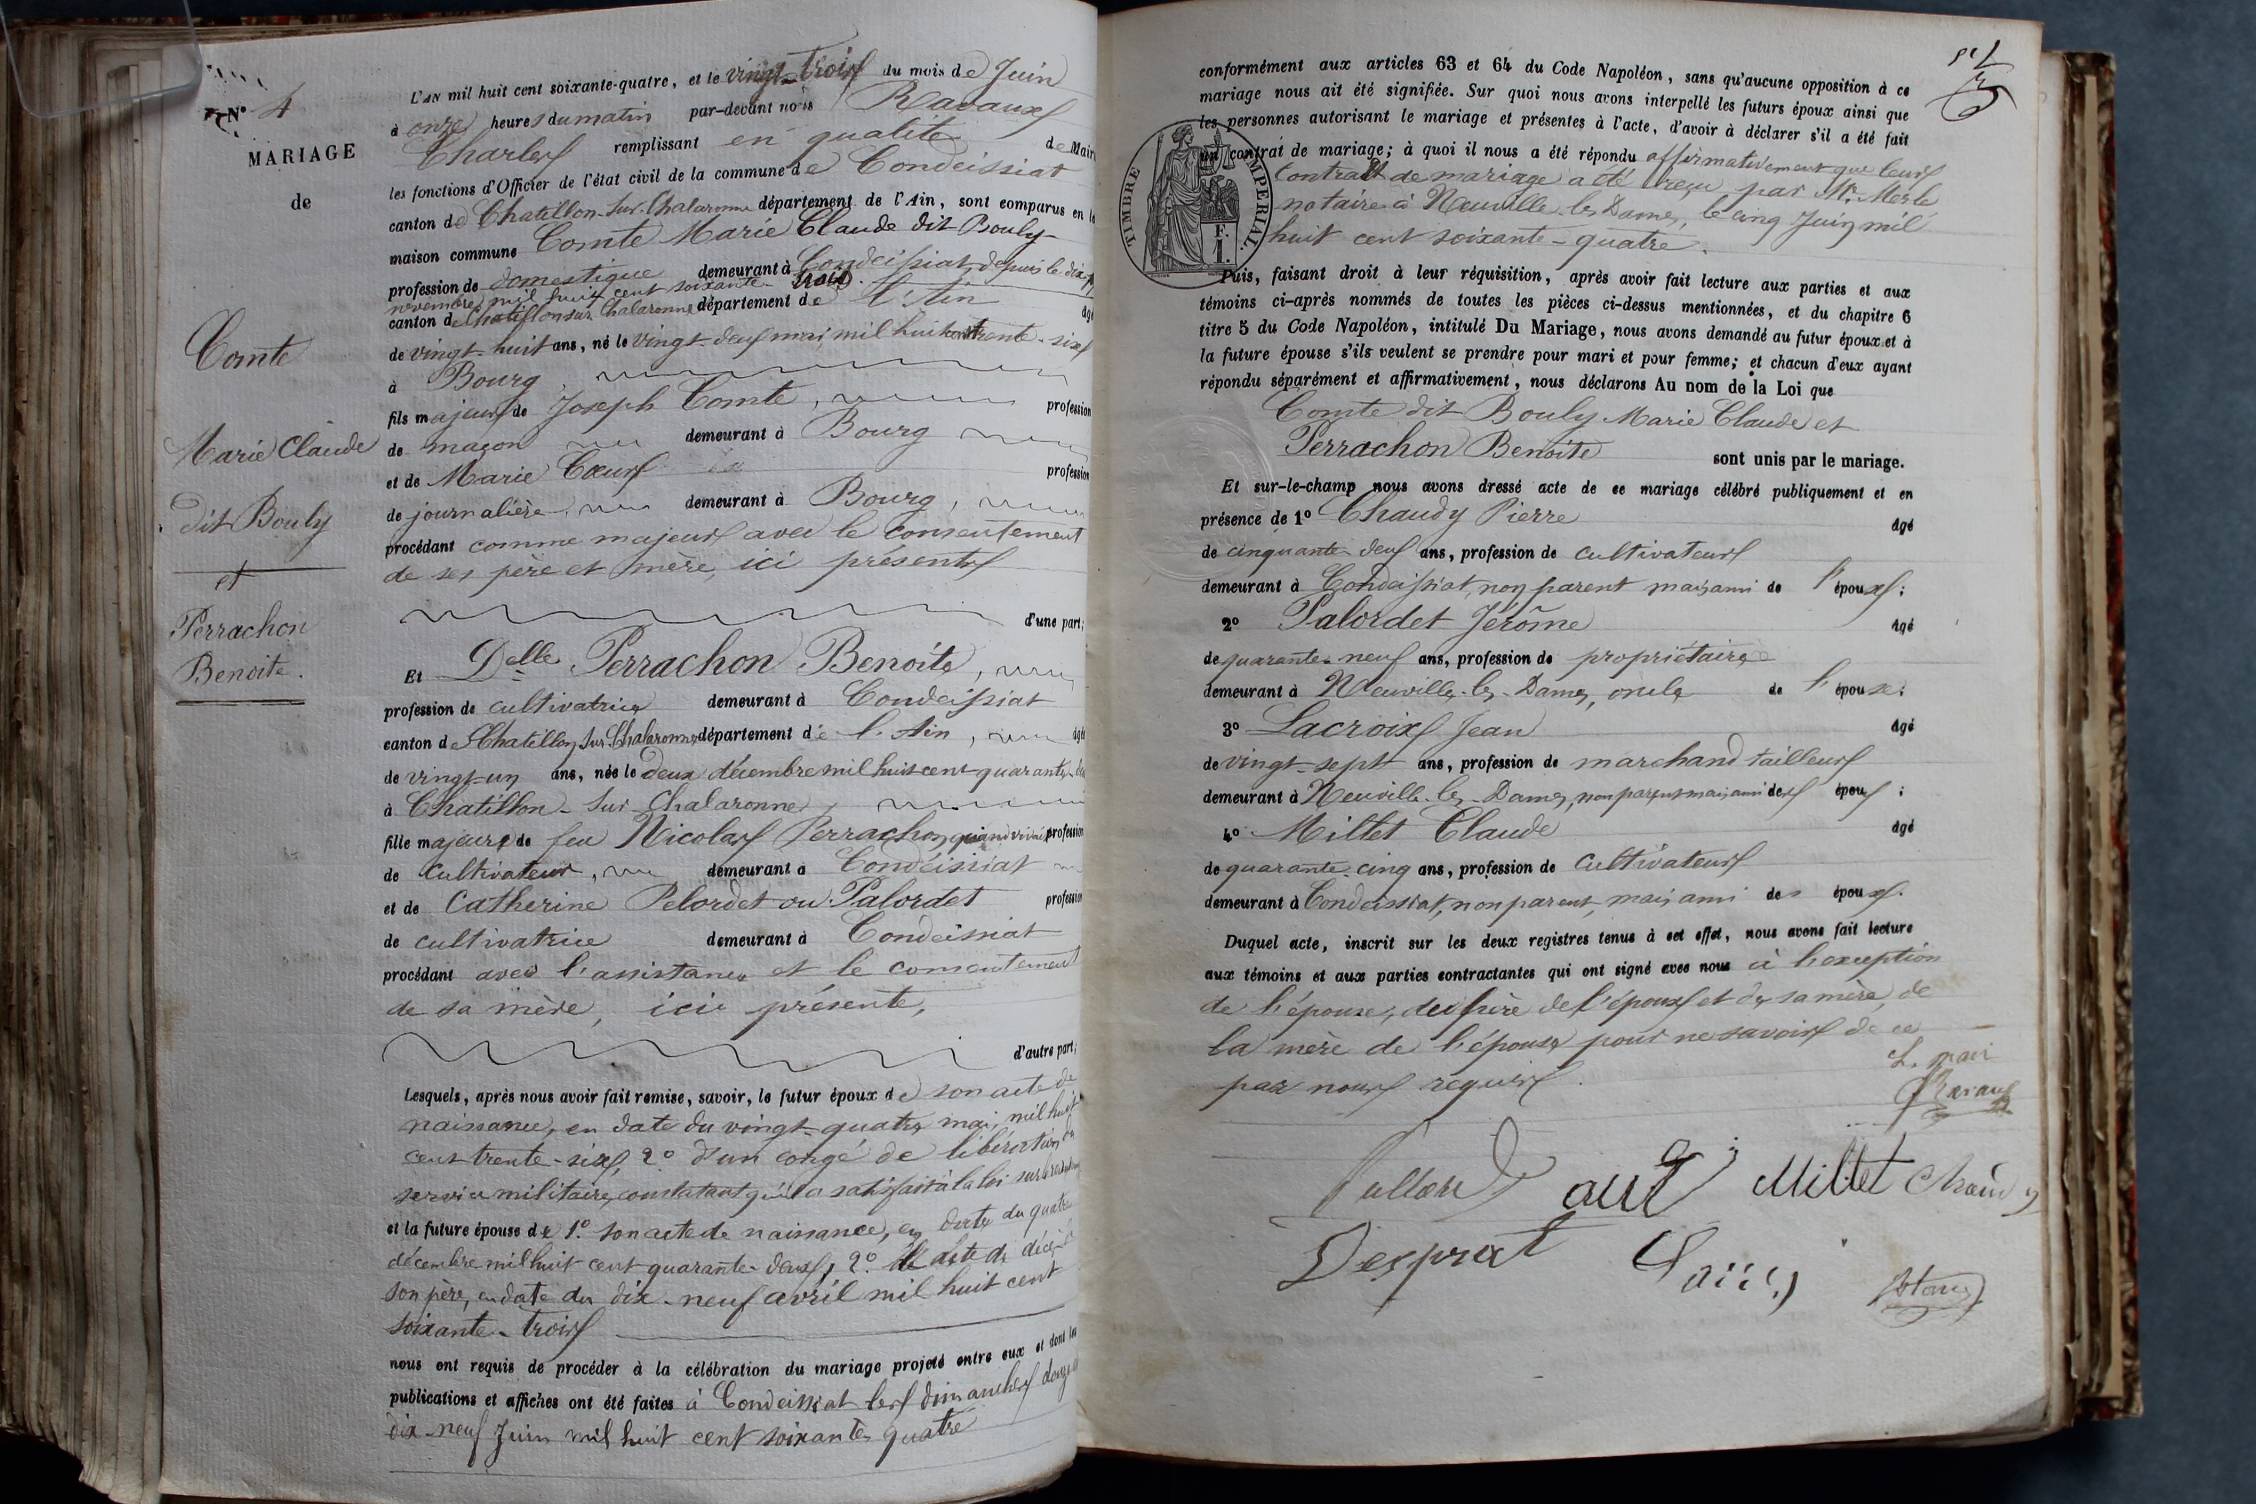 N° 4
MARIAGE
de
Comte
Marie Claude
dit Bouly
et
Perrachon
Benoite.
L'AN mil huit cent soixante-quatre, et le vingt-trois du mois de Juin
à onze heures du matin par-devant nous Ravaux
Charles remplissant en qualité de Maire
les fonctions d'Officier de l'état civil de la commune de Condeissiat
canton de Chatillon-sur-Chalaronne département de l'Ain, sont comparus en la
maison commune Comte Marie Claude dit Bouly
profession de domestique demeurant à Condeissiat depuis le dix
novembre mil huit cent soixante trois.
canton de Chatillon sur Chalaronne département de l'Ain âgé
de vingt-huit ans, né le vingt-deux mai mil huit cent trente-six
à Bourg,
fils majeur de Joseph Comte, profession
de maçon demeurant à Bourg
et de Marie Cœur profession
de journalière, demeurant à Bourg,
procédant comme majeur avec le consentement
de ses père et mère, ici présents
d'une part;
Et Delle Perrachon Benoite,
profession de cultivatrice demeurant à Condeissiat
canton de Chatillon sur Chalaronne département de l'Ain, âgée
de vingt-un ans, née le deux décembre mil huit cent quarante-
à Chatillon-sur-Chalaronne,
fille majeure de feu Nicolas Perrachon, quand vivait profession
de cultivateur, demeurant à Condeissiat
et de Catherine Pelordet ou Palordet profession
de cultivatrice demeurant à Condeissiat
procédant avec l'assistance et le consentement
de sa mère, ici présente,
d'autre part;
Lesquels, après nous avoir fait remise, savoir, le futur époux de son acte de
naissance, en date du vingt-quatre mai, mil huit
cent trente-six, 2° d'un congé de libération du
service militaire, constatant qu'il a satisfait à la loi sur le
et la future épouse de 1° son acte de naissance, en date du quatre
décembre mil huit cent quarante-deux, 2° acte de décès
son père, en date du dix-neuf avril mil huit cent
soixante-trois
nous ont requis de procéder à la célébration du mariage projeté entre eux et dont les
publications et affiches ont été faites à Condeissiat les dimanches douze
dix-neuf Juin mil huit cent soixante quatre
conformément aux articles 63 et 64 du Code Napoléon, sans qu'aucune opposition à ce
mariage nous ait été signifiée. Sur quoi nous avons interpellé les futurs époux ainsi que
les personnes autorisant le mariage et présentes à l'acte, d'avoir à déclarer s'il a été fait
un contrat de mariage; à quoi il nous a été répondu affirmativement que leur
contrat de mariage a été reçu par Me Merle
notaire à Neuville-les-Dames, le cinq Juin mil
huit cent soixante-quatre.
TIMBRE IMPERIAL.
1 F.
Puis, faisant droit à leur réquisition, après avoir fait lecture aux parties et aux
témoins ci-après nommés de toutes les pièces ci-dessus mentionnées, et du chapitre 6
titre 5 du Code Napoléon, intitulé Du Mariage, nous avons demandé au futur époux et à
la future épouse s'ils veulent se prendre pour mari et pour femme; et chacun d'eux ayant
répondu séparément et affirmativement, nous déclarons Au nom de la Loi que
Comte dit Bouly Marie Claude et
Perrachon Benoite sont unis par le mariage.
Et sur-le-champ nous avons dressé acte de ce mariage célébré publiquement et en
présence de 1° Chaudy Pierre âgé
de cinquante-deux ans, profession de cultivateur
demeurant à Condeissiat, non parent mais ami de l'époux;
2° Palordet Jérôme âgé
de quarante-neuf ans, profession de propriétaire
demeurant à Neuville-les-Dames, oncle de l'épouse;
3° Lacroix Jean âgé
de vingt-sept ans, profession de marchand tailleur
demeurant à Neuville-les-Dames, non parent mais ami des époux;
4° Millet Claude âgé
de quarante-cinq ans, profession de cultivateur
demeurant à Condeissiat, non parent, mais ami des époux.
Duquel acte, inscrit sur les deux registres tenus à cet effet, nous avons fait lecture
aux témoins et aux parties contractantes qui ont signé avec nous à l'exception
de l'épouse, du père de l'époux et de sa mère, de
la mère de l'épouse pour ne savoir de ce
par nous requis.
Le maire
Ravaux
Millet Chaudy
Desprat